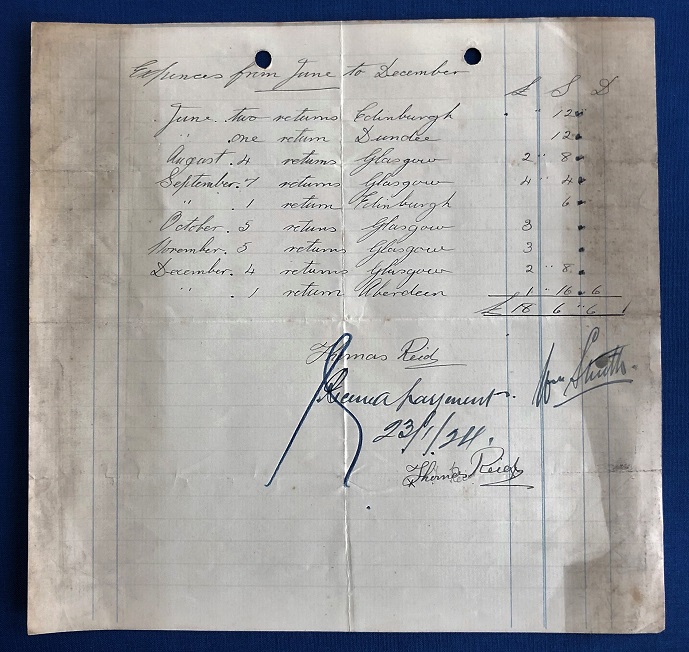 Expences from June to December
£ S D
June two returns Edinburgh " 12 "
" one return Dundee 12 "
August. 4 returns Glasgow 2 " 8 "
September. 7 returns Glasgow 4 " 4 "
" . 1 return Edinburgh 6 "
October. 5 returns Glasgow 3 "
November. 5 returns Glasgow 3 "
December. 4 returns Glasgow 2 " 8 "
" . 1 return Aberdeen 1 " 16 " 6
£ 18 6 " 6
Thomas Reid
payment. Wm Smith.
23/1/24.
Thomas Reid